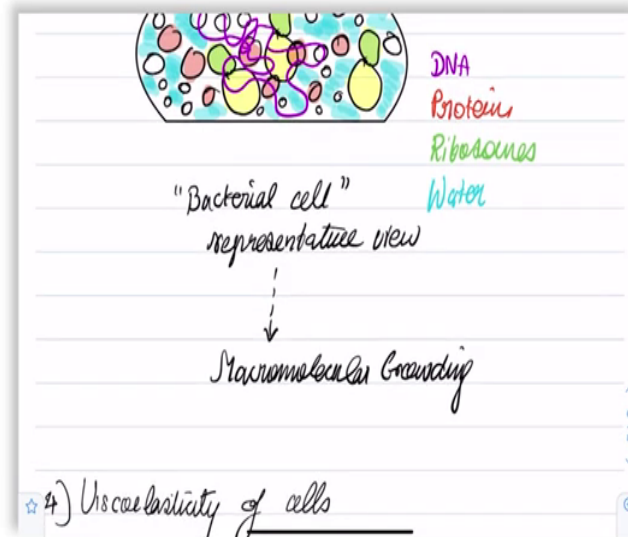 DNA
Proteins
Ribosomes
Water
"Bacterial cell"
representative view
Macromolecular Crowding
4) Viscoelasticity of cells